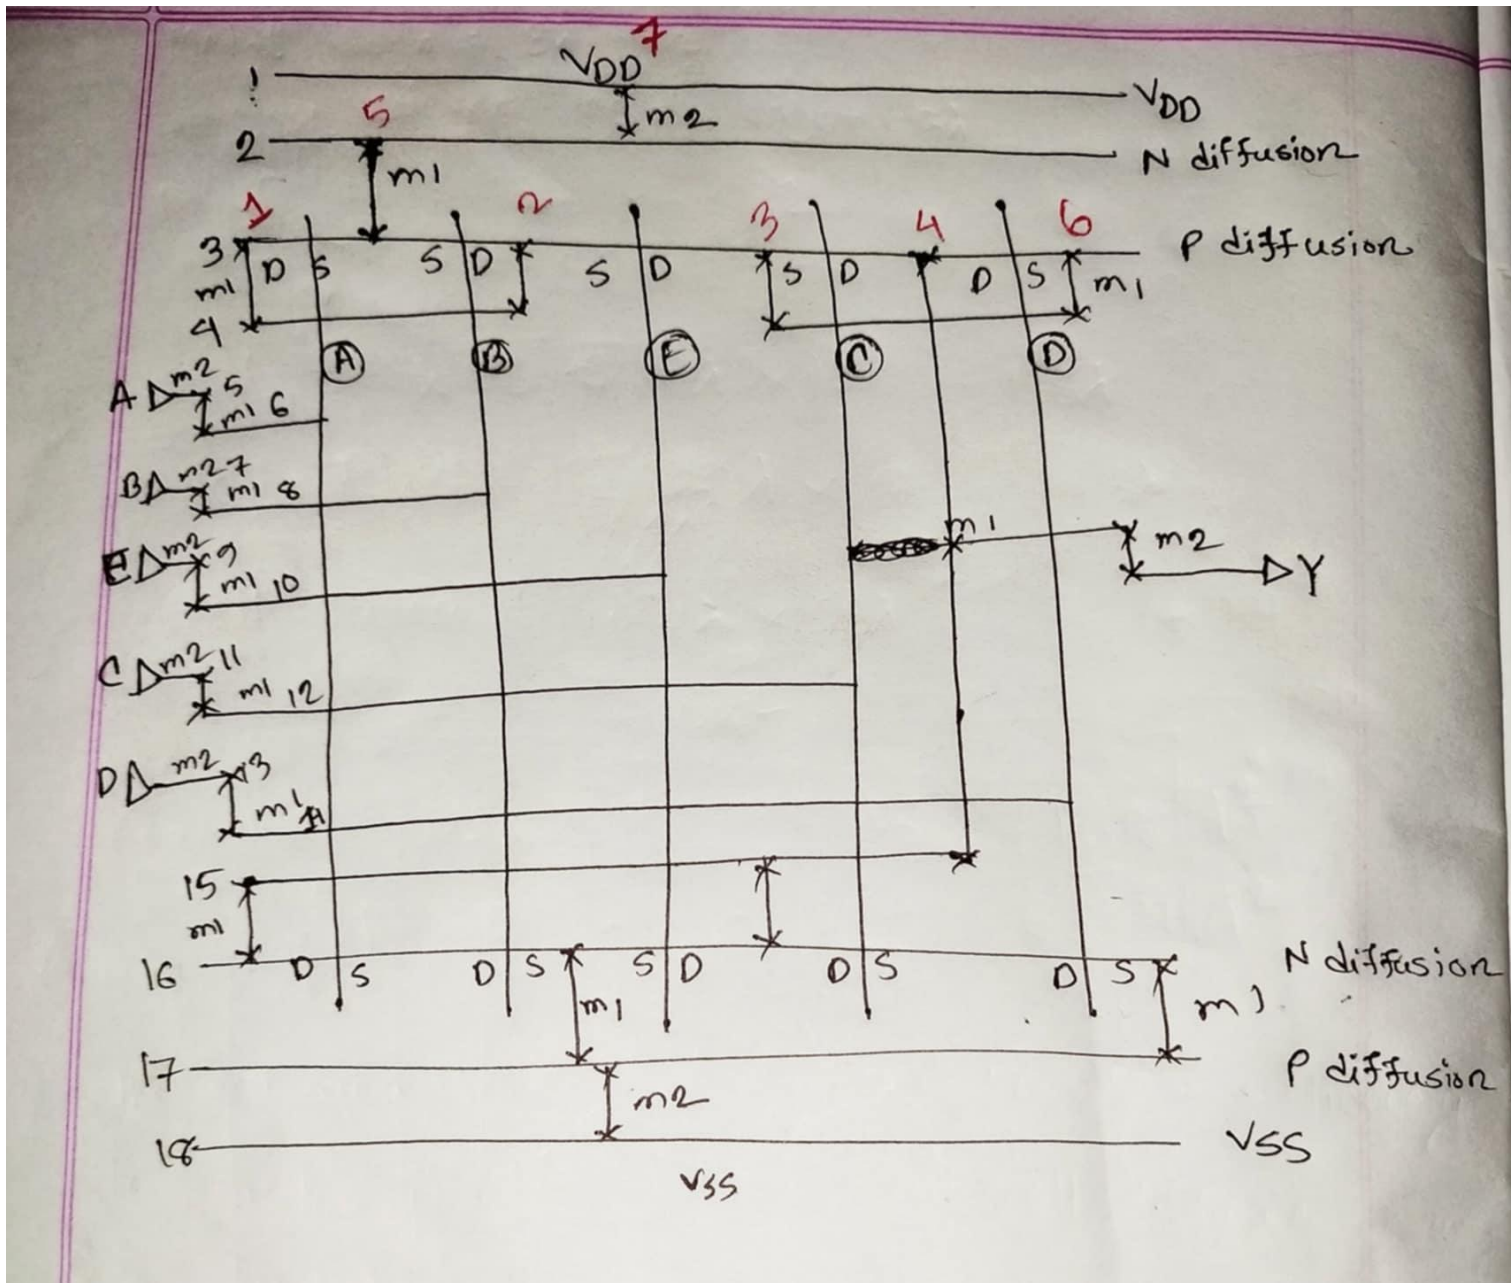 7
VDD
1
VDD
m2
5
2
N diffusion
m1
1 2 3 4 6
3
P diffusion
D S S D S D S D D S
m1 m1
4
A B E C D
A m2 5
m1 6
B m2 7
m1 8
m1
E m2 9
m2
m1 10
Y
C m2 11
m1 12
D m2 13
m1
15
m1
16 D S D S S D D S D S N diffusion
m1 m1
17 P diffusion
m2
18 VSS
VSS